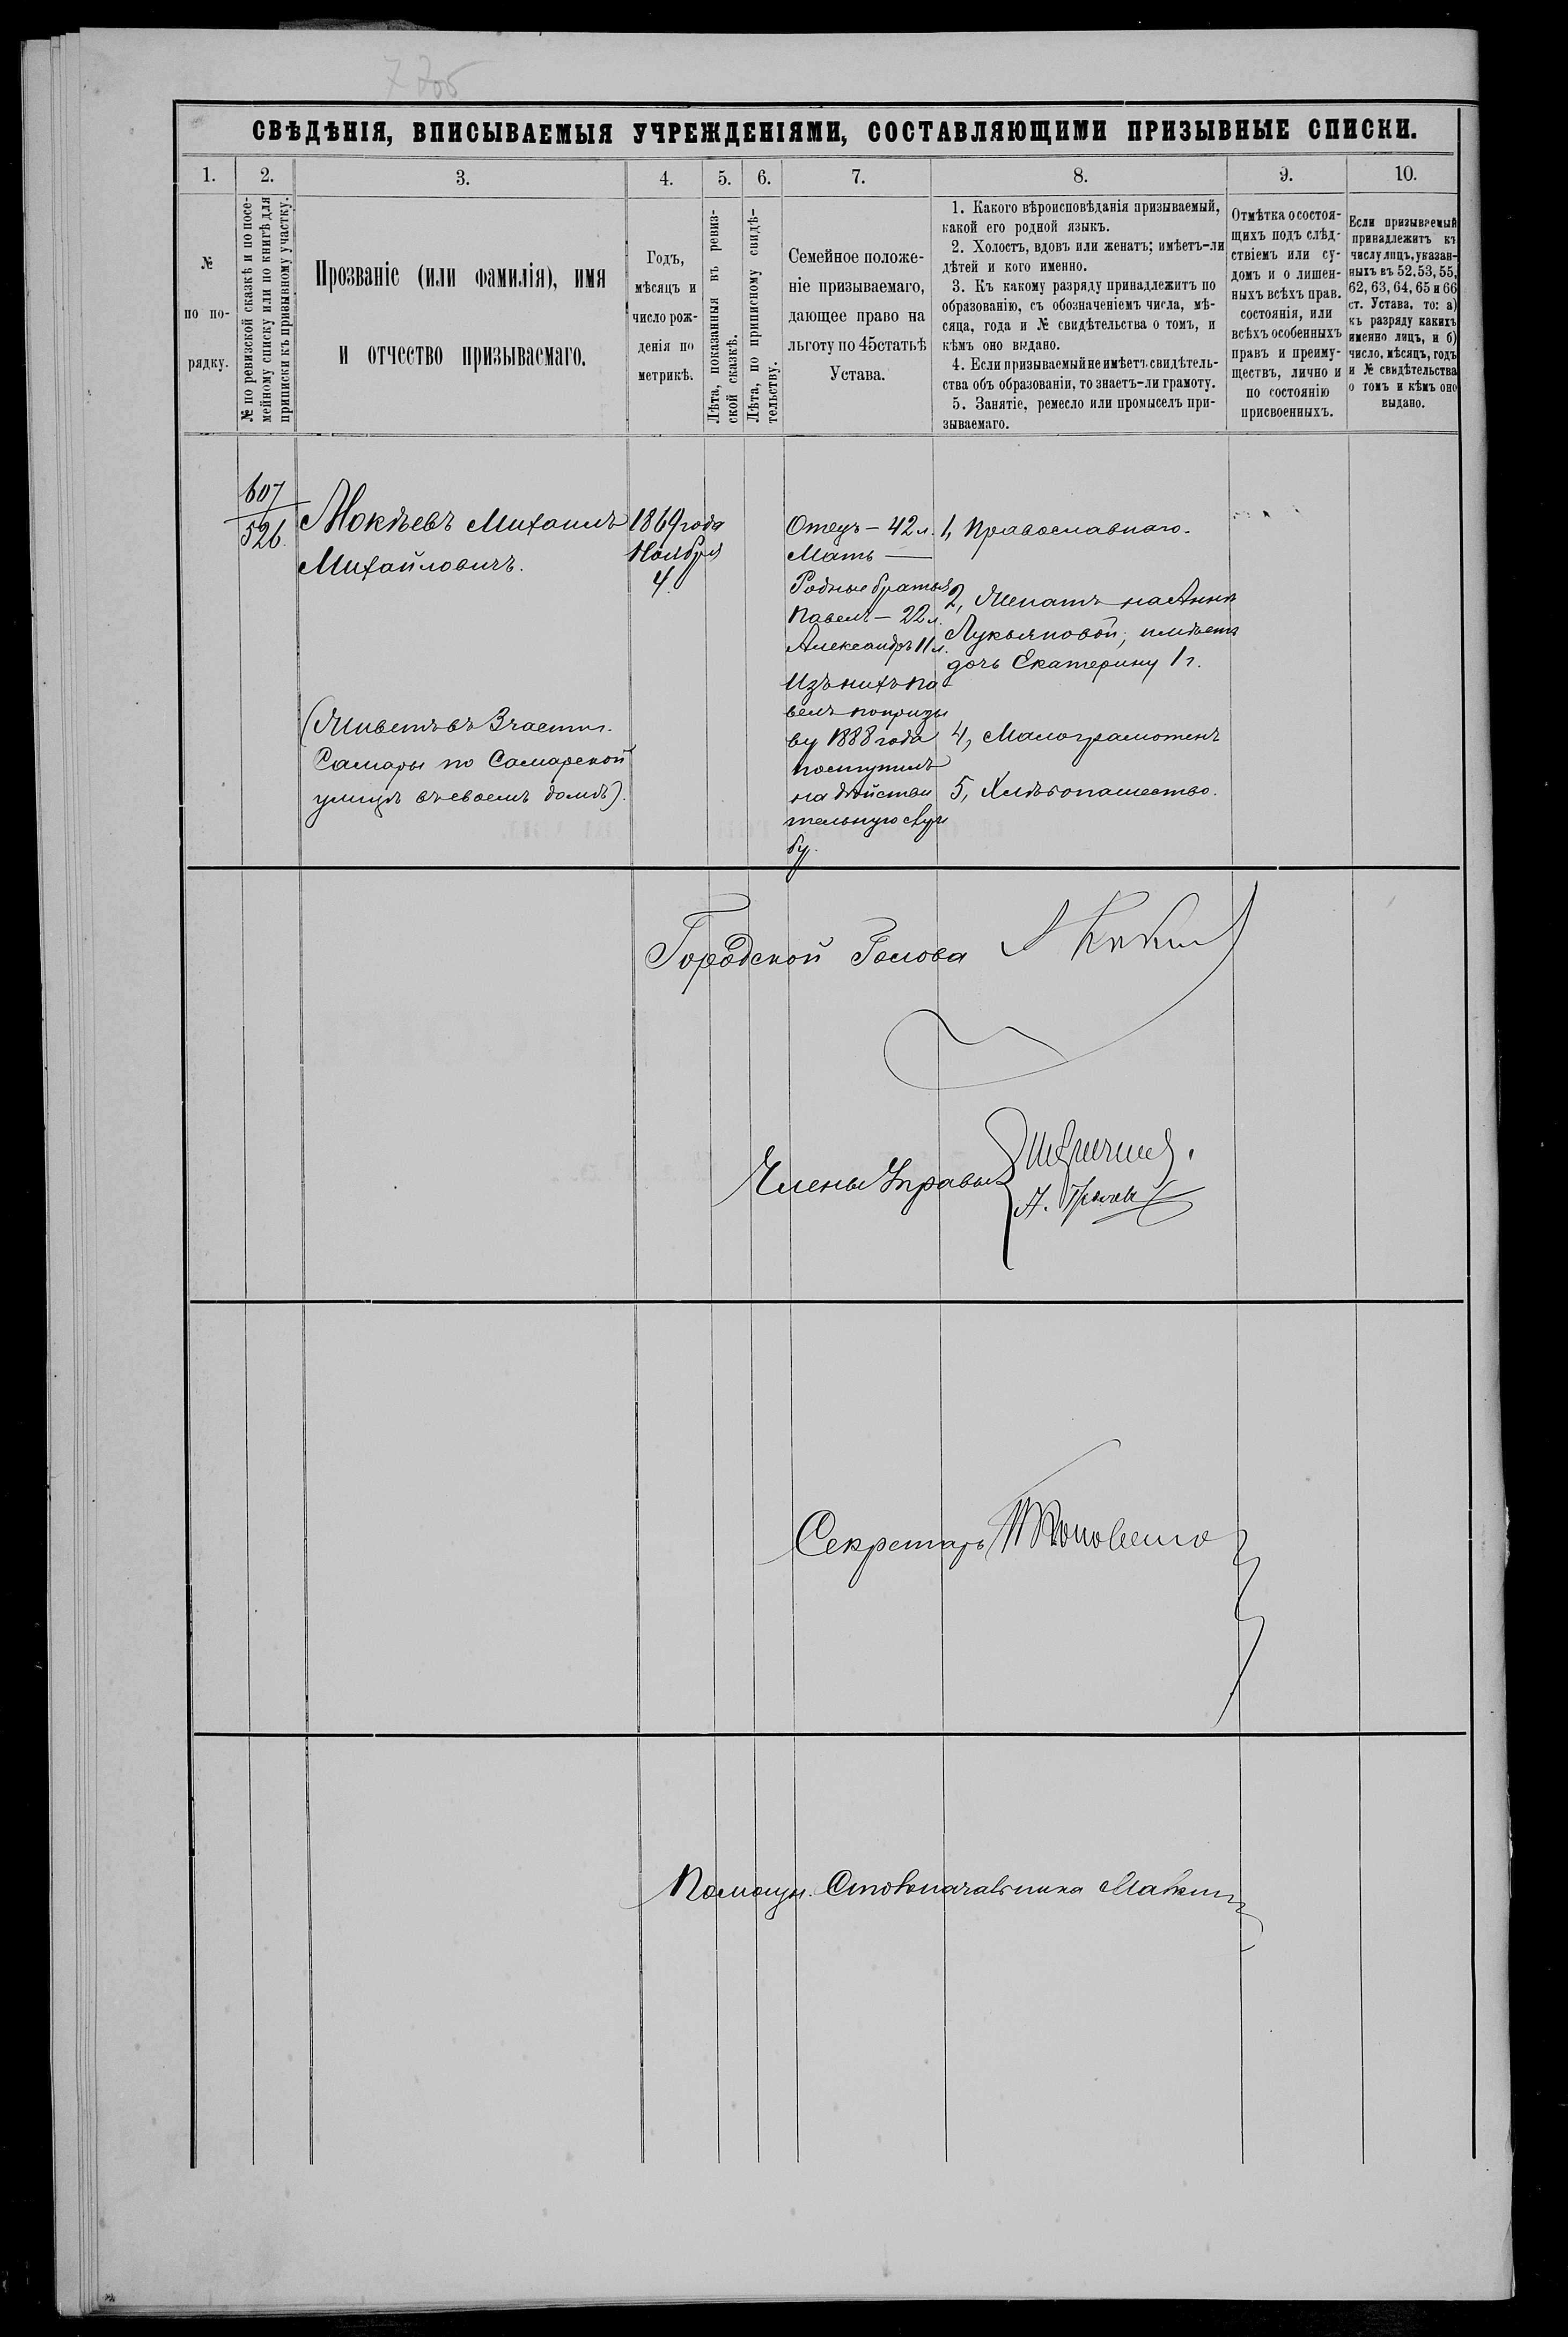 СВѢДѢНІЯ, ВПИСЫВАЕМЫЯ УЧРЕЖДЕНІЯМИ, СОСТАВЛЯЮЩИМИ ПРИЗЫВНЫЕ СПИСКИ.
1. 2. 3. 4. 5. 6. 7. 8. 9. 10.
№
по по-
рядку.
№ по ревизской сказкѣ и по посе-
мейному списку или по книгѣ для
приписки къ призывному участку.
Прозваніе (или фамилія), имя
и отчество призываемаго.
Годъ,
мѣсяцъ и
число рож-
денія по
метрикѣ.
Лѣта, показанныя въ ревиз-
ской сказкѣ.
Лѣта, по приписному свидѣ-
тельству.
Семейное положе-
ніе призываемаго,
дающее право на
льготу по 45статьѣ
Устава.
1. Какого вѣроисповѣданія призываемый,
какой его родной языкъ.
2. Холостъ, вдовъ или женатъ; имѣетъ-ли
дѣтей и кого именно.
3. Къ какому разряду принадлежитъ по
образованію, съ обозначеніемъ числа, мѣ-
сяца, года и № свидѣтельства о томъ, и
кѣмъ оно выдано.
4. Если призываемый не имѣетъ свидѣтель-
ства объ образованіи, то знаетъ-ли грамоту.
5. Занятіе, ремесло или промыселъ при-
зываемаго.
Отмѣтка о состоя-
щихъ подъ слѣд-
ствіемъ или су-
домъ и о лишен-
ныхъ всѣхъ прав.
состоянія, или
всѣхъ особенныхъ
правъ и преиму-
ществъ, лично и
по состоянію
присвоенныхъ.
Если призываемый
принадлежитъ къ
числу лицъ, указан-
ныхъ въ 52, 53, 55,
62, 63, 64, 65 и 66
ст. Устава, то: а)
къ разряду какихъ
именно лицъ, и б)
число, мѣсяцъ, годъ
и № свидѣтельства
о томъ и кѣмъ оно
выдано.
607
526
Мокѣевъ Михаилъ
Михайловичъ.
(Живетъ въ 3 части.
Самары по Самарской
улицѣ въ своемъ домѣ).
1869 года
Ноября
4.
Отецъ — 42 л.
Мать —
Родные братья
Павелъ — 22 л.
Александръ 11 л.
Изъ нихъ Па
велъ по призы
ву 1888 года
поступилъ
на дѣйстви
тельную служ
бу.
1, Православнаго.
2, Женатъ на Аннѣ
Лукьяновой; имѣетъ
дочь Екатерину 1 г.
4, Малограмотенъ
5, Хлѣбопашество.
Городской Голова
Члены Управы
Секретарь
Помощн. Столоначальника